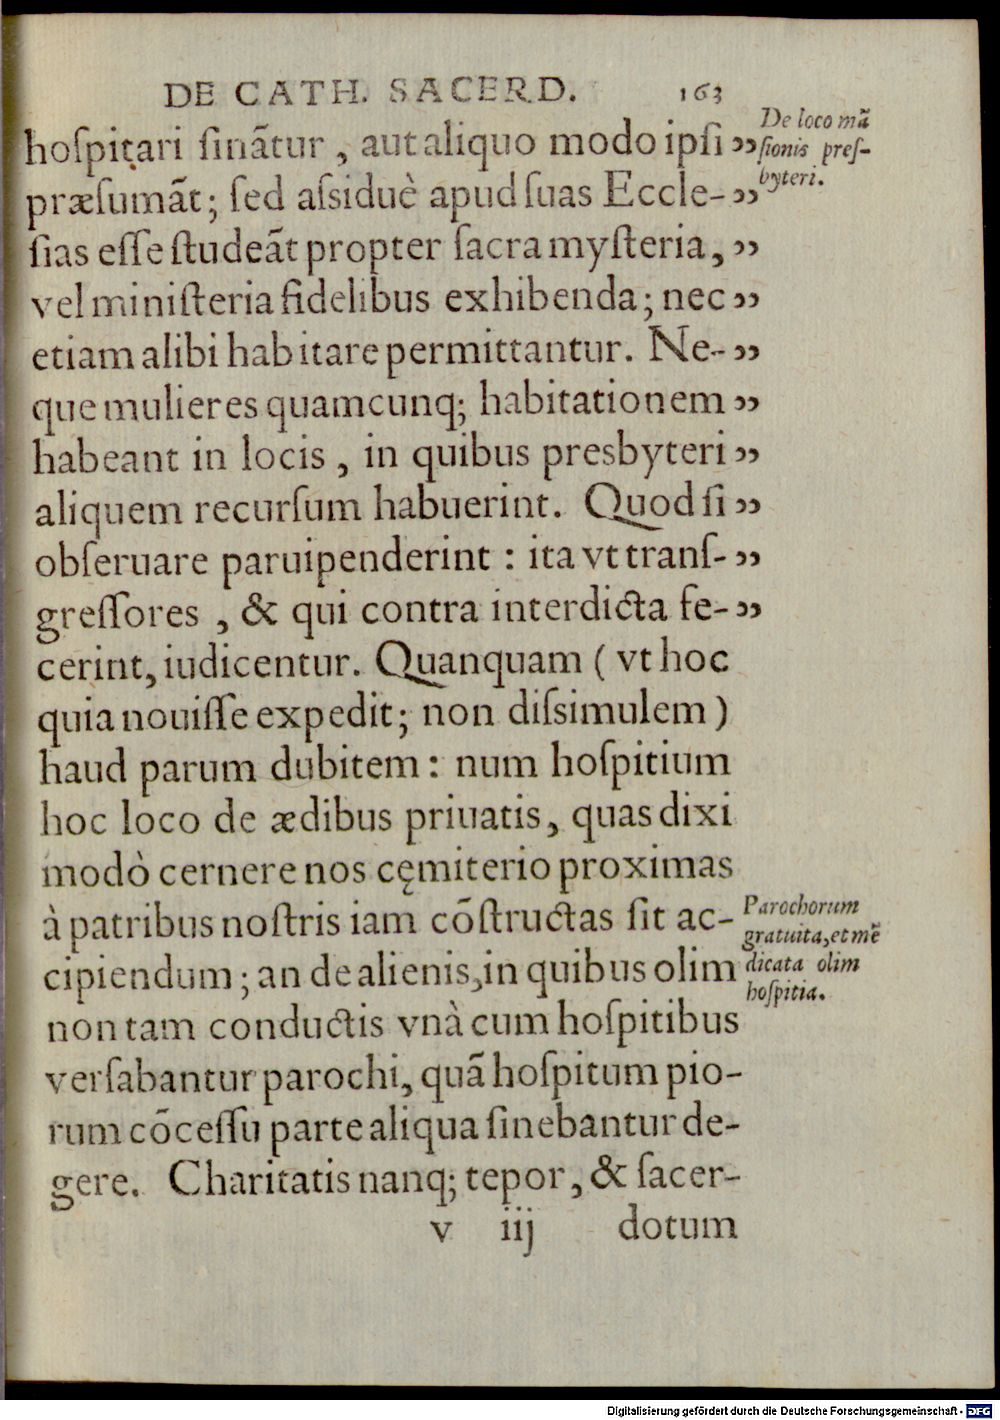 DE CATH. SACERD. 163
hoſpitari ſinãtur , aut aliquo modo ipſi ”
præſumãt; ſed aſsiduè apud ſuas Eccle- ”
ſias eſſe ſtudeãt propter ſacra myſteria, ”
vel miniſteria fidelibus exhibenda; nec ”
etiam alibi habitare permittantur. Ne- ”
que mulieres quamcunq; habitationem ”
habeant in locis , in quibus presbyteri ”
aliquem recurſum habuerint. Quod ſi ”
obſeruare paruipenderint : ita vt tranſ- ”
greſſores , & qui contra interdicta fe- ”
cerint, iudicentur. Quanquam ( vt hoc
quia nouiſſe expedit; non diſsimulem )
haud parum dubitem : num hoſpitium
hoc loco de ædibus priuatis, quas dixi
modò cernere nos cęmiterio proximas
à patribus noſtris iam cõſtructas ſit ac-
cipiendum; an de alienis, in quibus olim
non tam conductis vnà cum hoſpitibus
verſabantur parochi, quã hoſpitum pio-
rum cõceſſu parte aliqua ſinebantur de-
gere. Charitatis nanq; tepor, & ſacer-
v iij dotum
De loco mã
ſionis preſ-
byteri.
Parochorum
gratuita, et mẽ
dicata olim
hoſpitia.
Digitalisierung gefördert durch die Deutsche Forschungsgemeinschaft - DFG